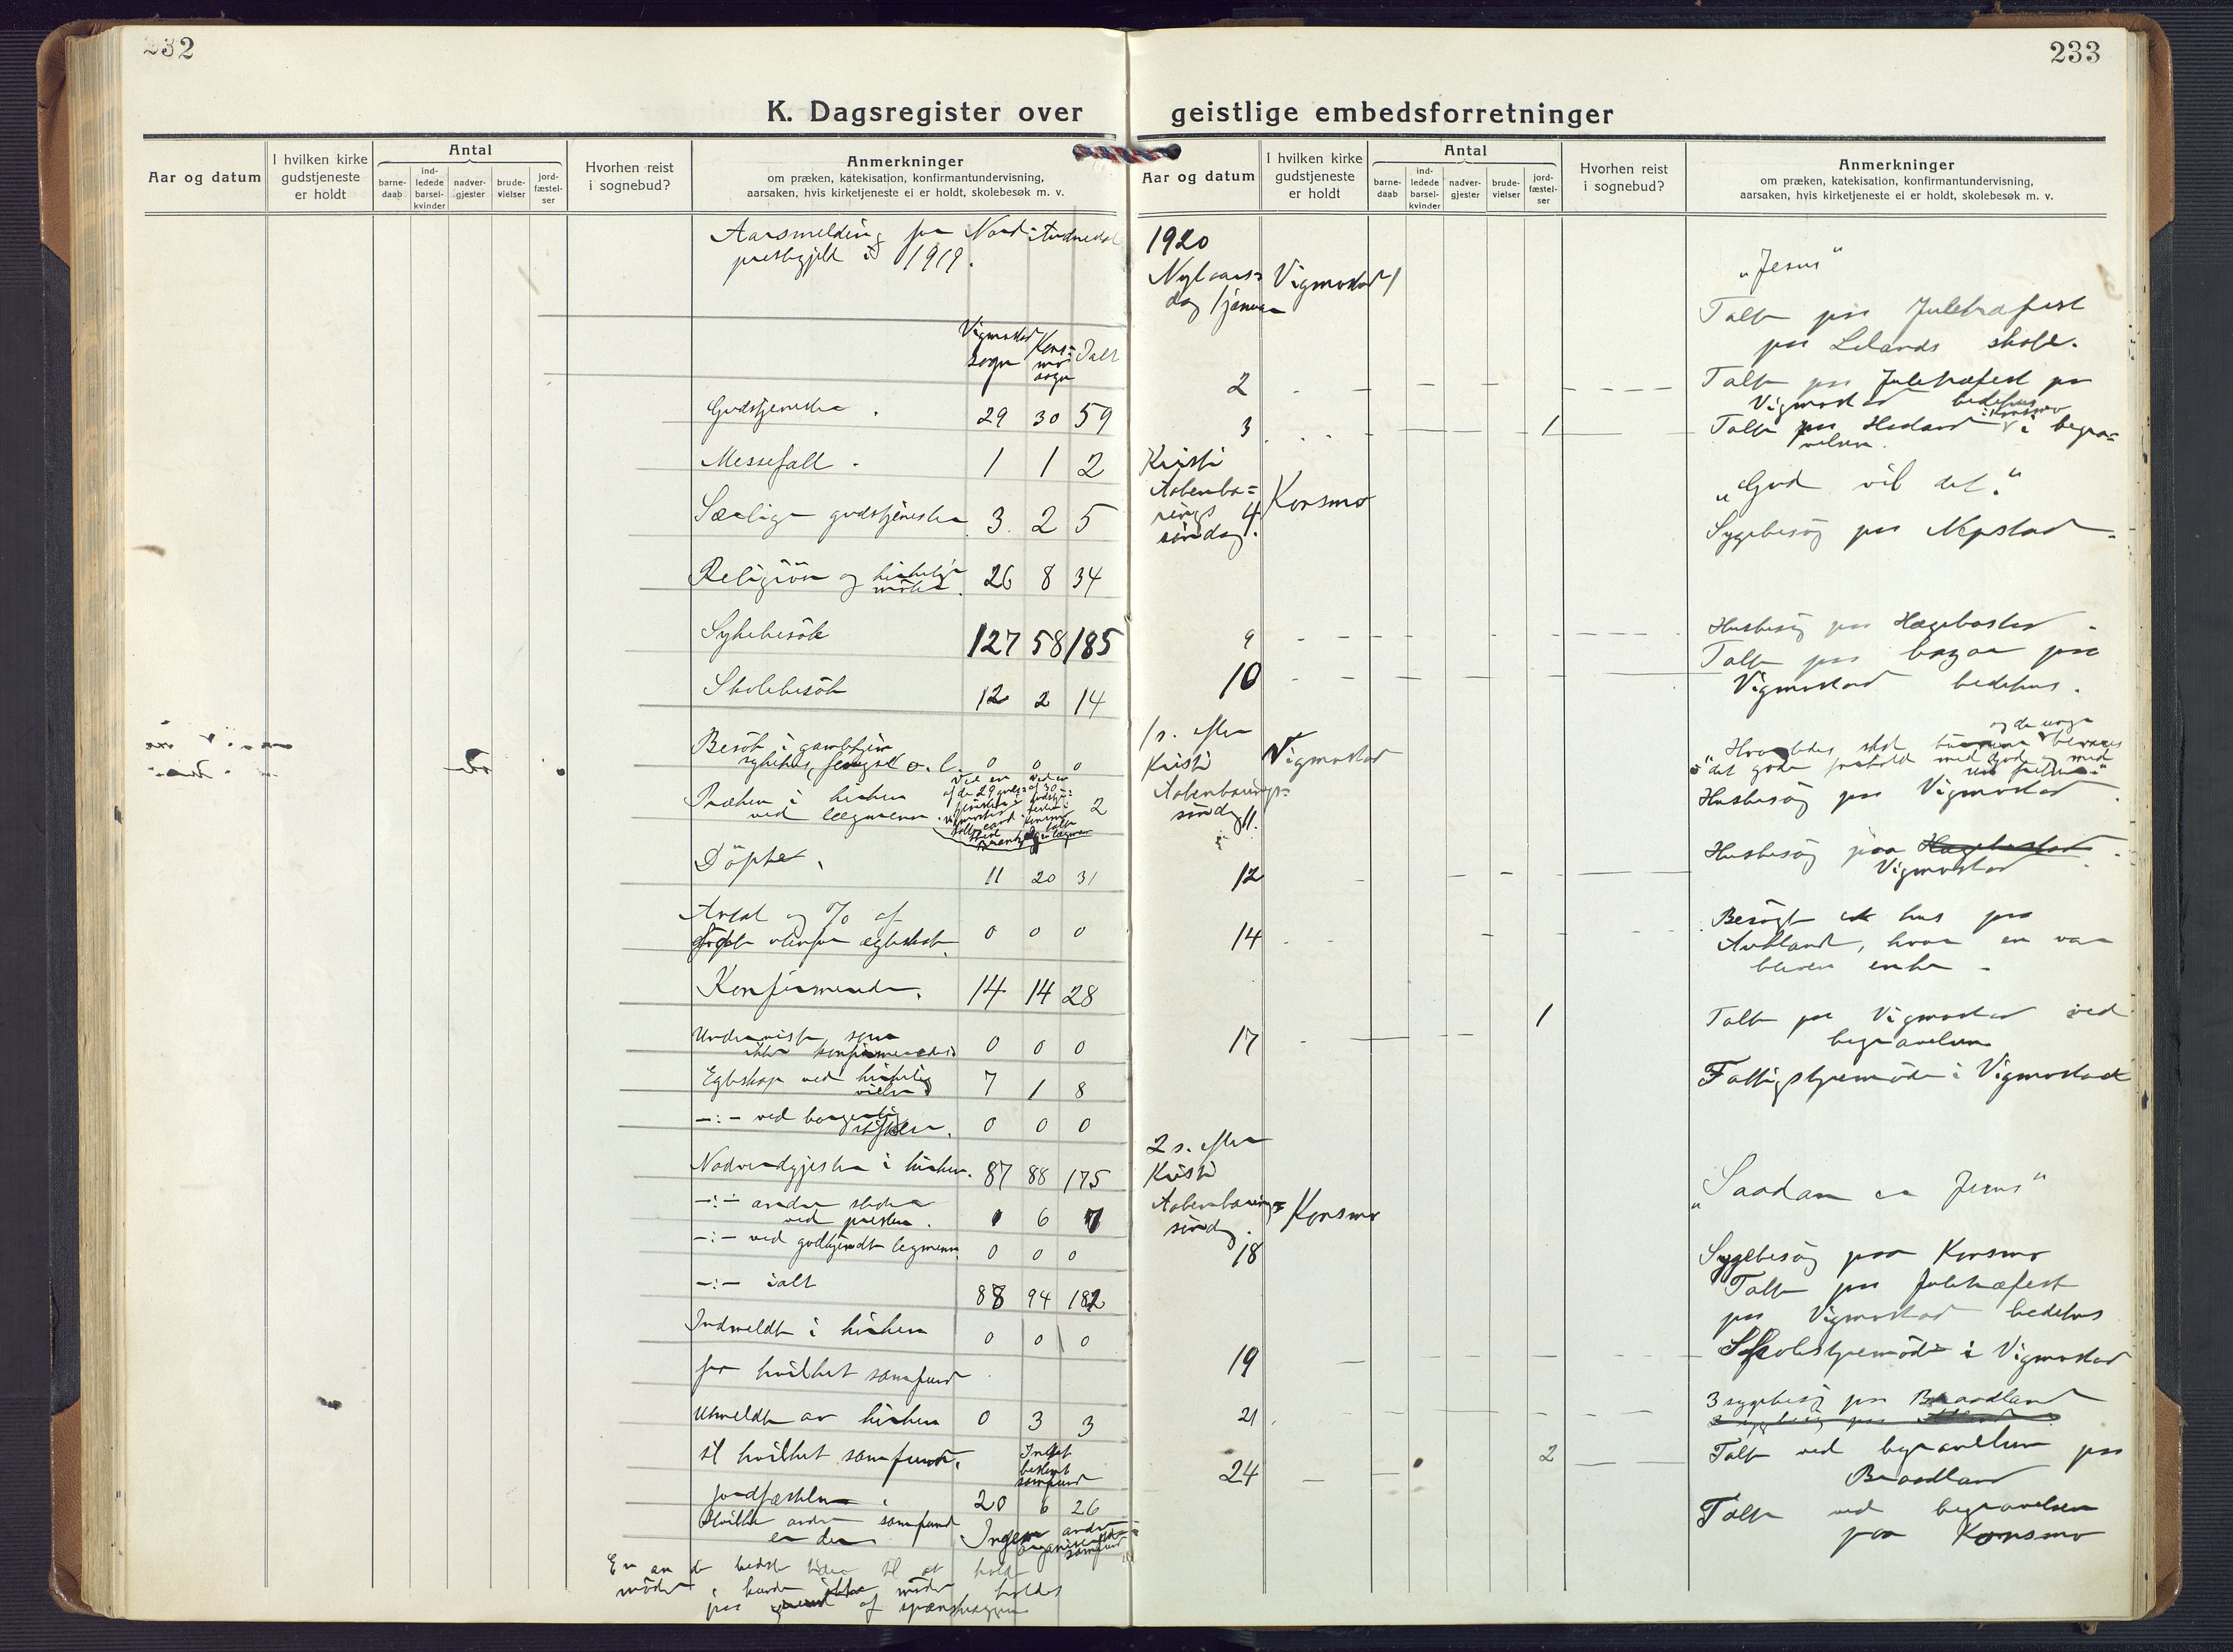 232
K. Dagsregister over
Aar og datum
I hvilken kirke
gudstjeneste
er holdt
Antal
barne-
daab
ind-
ledede
barsel-
kvinder
nadver-
gjester
brude-
vielser
jord-
fæstel-
ser
Hvorhen reist
i sognebud?
Anmerkninger
om præken, katekisation, konfirmantundervisning,
aarsaken, hvis kirketjeneste ei er holdt, skolebesøk m. v.
Aarsmelding for Nord-Audnedal
prestegjeld i 1919.
Vigmostad sogn Konsmo sogn Ialt
Gudstjenester . 29 30 59
Messefall . 1 1 2
Særlige gudstjenester 3 2 5
Religiöse og kirkelige möter. 26 8 34
Sykebesök 127 58 185
Skolebesök 12 2 14
Besök i gamlehjem
sykehus, fengsel o. l. 0 0 0
Præken i kirken
ved lægmenn 2
Döpte 11 20 31
Antal og % af
döpte utenfor egteskab. 0 0 0
Konfirmerede. 14 14 28
Underviste som
ikke konfirmeredes 0 0 0
Egteskap ved kirkelig
vielse 7 1 8
-:- ved borgerlig
vielse. 0 0 0
Nadverdgjester i kirken. 87 88 175
-:- andre steder
ved presten. 1 6 7
-:- ved godkjendte legmenn. 0 0 0
-:- ialt 88 94 182
Indmeldt i kirken 0 0 0
fra hvilket samfund
Utmeldt av kirken 0 3 3
til hvilket samfund. Intet
bestemt
samfund
Jordfæstelser . 20 6 26
Hvilke andre samfund
er der Ingen andre
organiserte
samfund
En av de bedste tider til at holde
möter, kunde ikke möter holdes
paa grund af spanskesygen
233
geistlige embedsforretninger
Aar og datum
I hvilken kirke
gudstjeneste
er holdt
Antal
barne-
daab
ind-
ledede
barsel-
kvinder
nadver-
gjester
brude-
vielser
jord-
fæstel-
ser
Hvorhen reist
i sognebud?
Anmerkninger
om præken, katekisation, konfirmantundervisning,
aarsaken, hvis kirketjeneste ei er holdt, skolebesøk m. v.
1920
Nytaars-
dag 1 januar Vigmostad
"Jesus"
Talte paa Juletræfest
paa Lelands skole.
2 Talte paa Juletræfest paa
Vigmostad bedehus
3 1 Talte paa i Konsmo i begra-
velsen.
Kristi
Aabenba-
rings 4
söndag. Konsmo
"Gud vil det."
Sygebesög paa Nepstad.
9 Husbesög paa Hægebostad.
10 Talte paa bazar paa
Vigmostad bedehus.
1 s. efter
Kristi
Aabenbarings-
söndag 11. Vigmostad
"Hvorledes skal og de unge bevares
i det gode forhold med Gud og med
Husbesög paa Vigmostad.
12 Husbesög paa Hægebostad
Vigmostad
14 Besögt et hus paa
Aukland, hvor en var
bleven enke.
17 1 Talte paa Vigmostad ved
begravelsen
Fattigstyremöde i Vigmostad
2 s. efter
Kristi
Aabenbarings-
söndag.
18 Konsmo
"Saadan er Jesus"
Sygebesög paa Konsmo
Talte paa Juletræfest
paa Vigmostad bedehus
19 Skolestyremöde i Vigmostad
21 3 sygebesög paa Braadland
24 2 Talte ved begravelsen paa
Braadland
Talte ved begravelsen
paa Konsmo